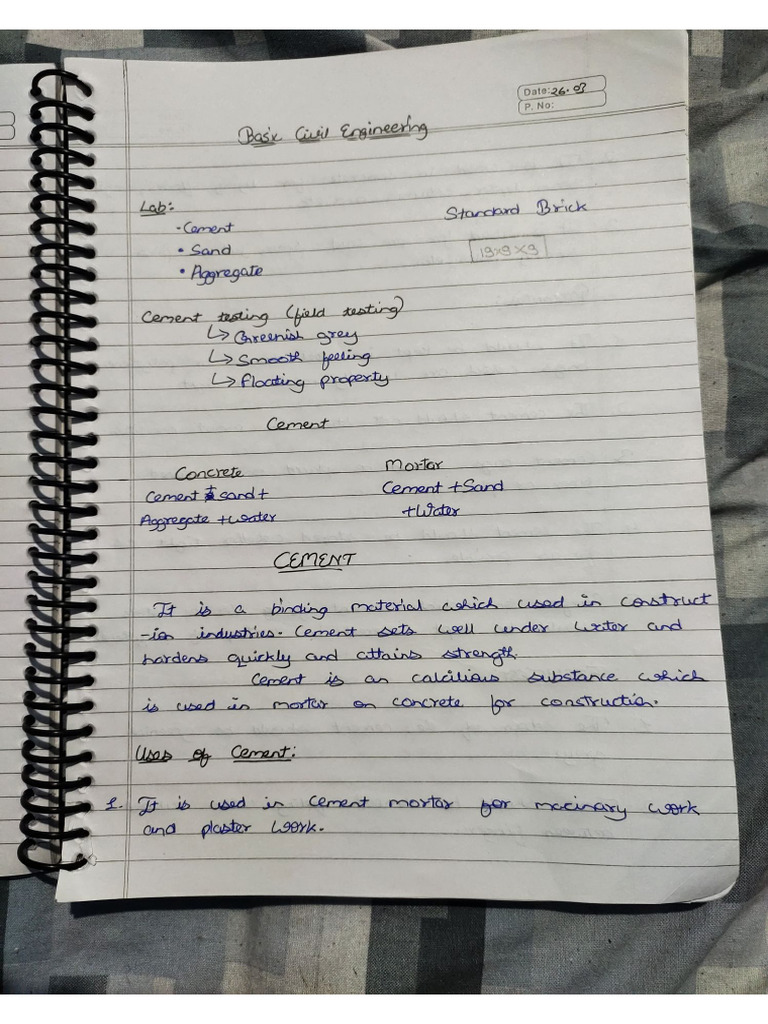 Date: 26.03
P. No:
Basic Civil Engineering
Lab:
Standard Brick
• Cement
• Sand
19×9×9
• Aggregate
Cement testing (field testing)
↳ Greenish grey
↳ Smooth feeling
↳ Floating property
Cement
Concrete
Mortar
Cement + sand +
Cement + Sand
Aggregate + water
+ Water
CEMENT
It is a binding material which used in construct
-ion industries. Cement sets well under water and
hardens quickly and attains strength.
Cement is an calcilious substance which
is used in mortar on concrete for construction.
Uses of Cement:
1. It is used in cement mortar for macinary work
and plaster work.